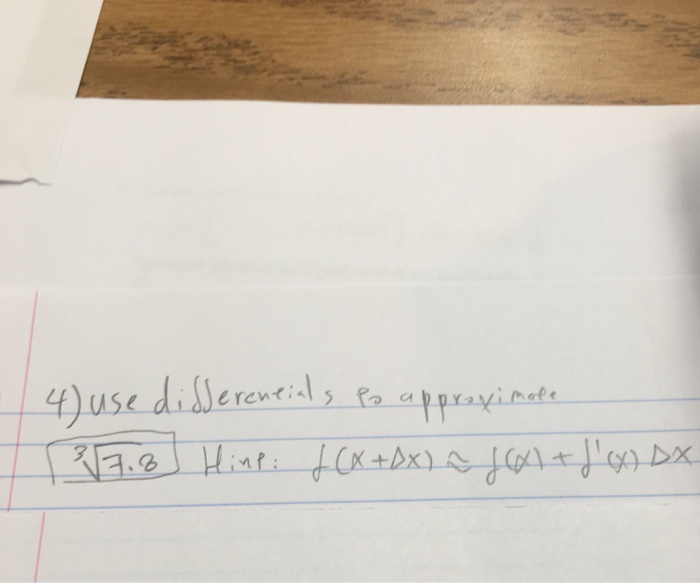 4) use differentials to approximate
∛7.8 Hint: f(x+Δx) ≈ f(x) + f'(x) Δx